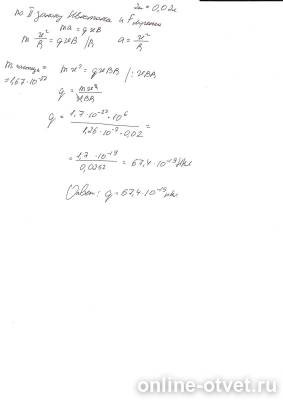 2м = 0,02м
по II закону Ньютона и Fлоренса
ma = qυB
m υ²/R = qυB |R a = υ²/R
m частицы =
= 1,67·10⁻²⁷
mυ² = qυBR |:υBR
q = mυ²/υBR
q = 1,7·10⁻²⁷·10⁶ / 1,26·10⁻²·0,02 =
= 1,7·10⁻¹⁹ / 0,0252 = 67,4·10⁻¹⁹ Кл
Ответ: q = 67,4·10⁻¹⁹ Кл
online-otvet.ru